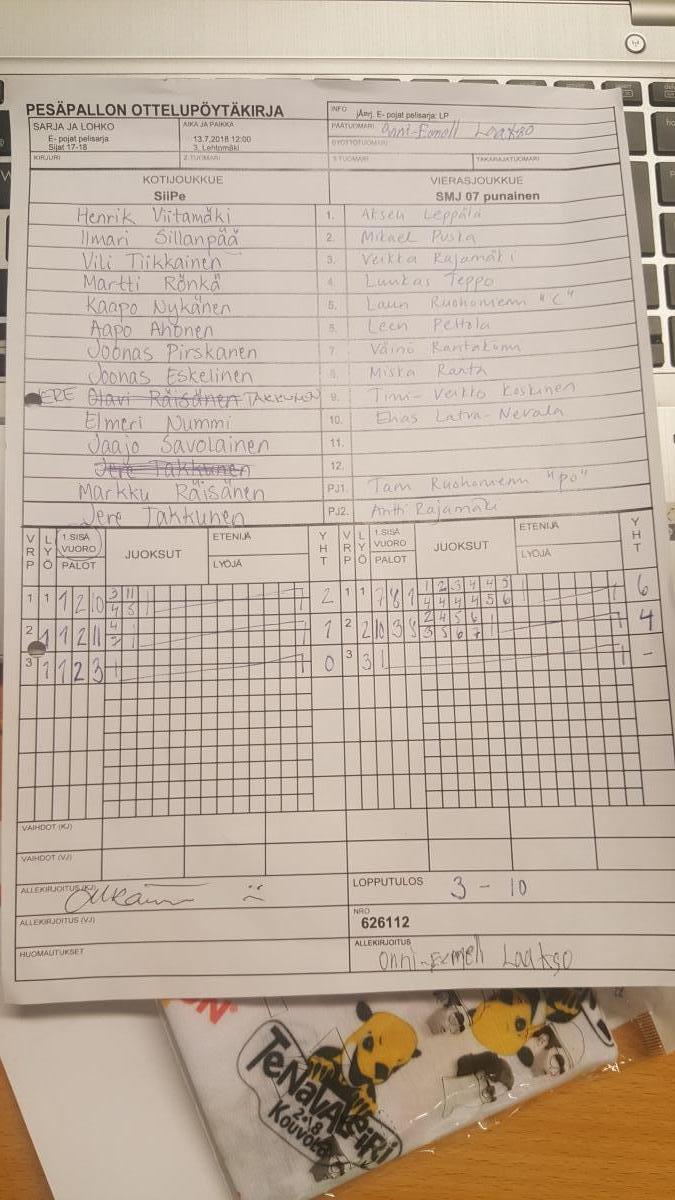 PESÄPALLON OTTELUPÖYTÄKIRJA
INFO jÄmj. E- pojat pelisarja: LP
SARJA JA LOHKO
E- pojat pelisarja
Sijat 17-18
AIKA JA PAIKKA
13.7.2018 12:00
3. Lehtomäki
PÄÄTUOMARI Onni-Eemeli Laakso
SYÖTTÖTUOMARI
KIRJURI 2-TUOMARI 3-TUOMARI TAKARAJATUOMARI
KOTIJOUKKUE VIERASJOUKKUE
SiiPe SMJ 07 punainen
Henrik Viitamäki 1. Leppälä
Ilmari Sillanpää 2. Mikael
Vili Tiikkainen 3. Veikka Rajamäki
Martti Rönkä 4. Luukas Teppo
Kaapo Nykänen 5. "C"
Aapo Ahonen 6. Peltola
Joonas Pirskanen 7. Väinö
Joonas Eskelinen 8. Miska Ranta
JERE Olavi Räisänen TAKKUNEN 9. Timi-Veikko Koskinen
Elmeri Nummi 10. Elias Latva-Nevala
Jaajo Savolainen 11.
Jere Takkunen 12.
Markku Räisänen PJ1. "PO"
Jere Takkunen PJ2. Antti Rajamäki
VRP LYÖ 1.SISÄ VUORO PALOT JUOKSUT ETENIJÄ LYÖJÄ YHT VRP LYÖ 1.SISÄ VUORO PALOT JUOKSUT ETENIJÄ LYÖJÄ YHT
1 1 1 2 10 3 11 2 1 1 7 8 1 1 2 3 4 4 5 6
4 5 4 4 4 4 5 6
2 1 1 2 11 4 1 2 2 10 3 5 2 4 5 6 4
3 5 6 7
3 1 1 2 3 0 3 3 1 -
VAIHDOT (KJ)
VAIHDOT (VJ)
ALLEKIRJOITUS (KJ)
LOPPUTULOS 3 - 10
ALLEKIRJOITUS (VJ)
NRO
626112
HUOMAUTUKSET
ALLEKIRJOITUS
Onni-Eemeli Laakso
TENAVALEIRI
2018
KOUVOLA